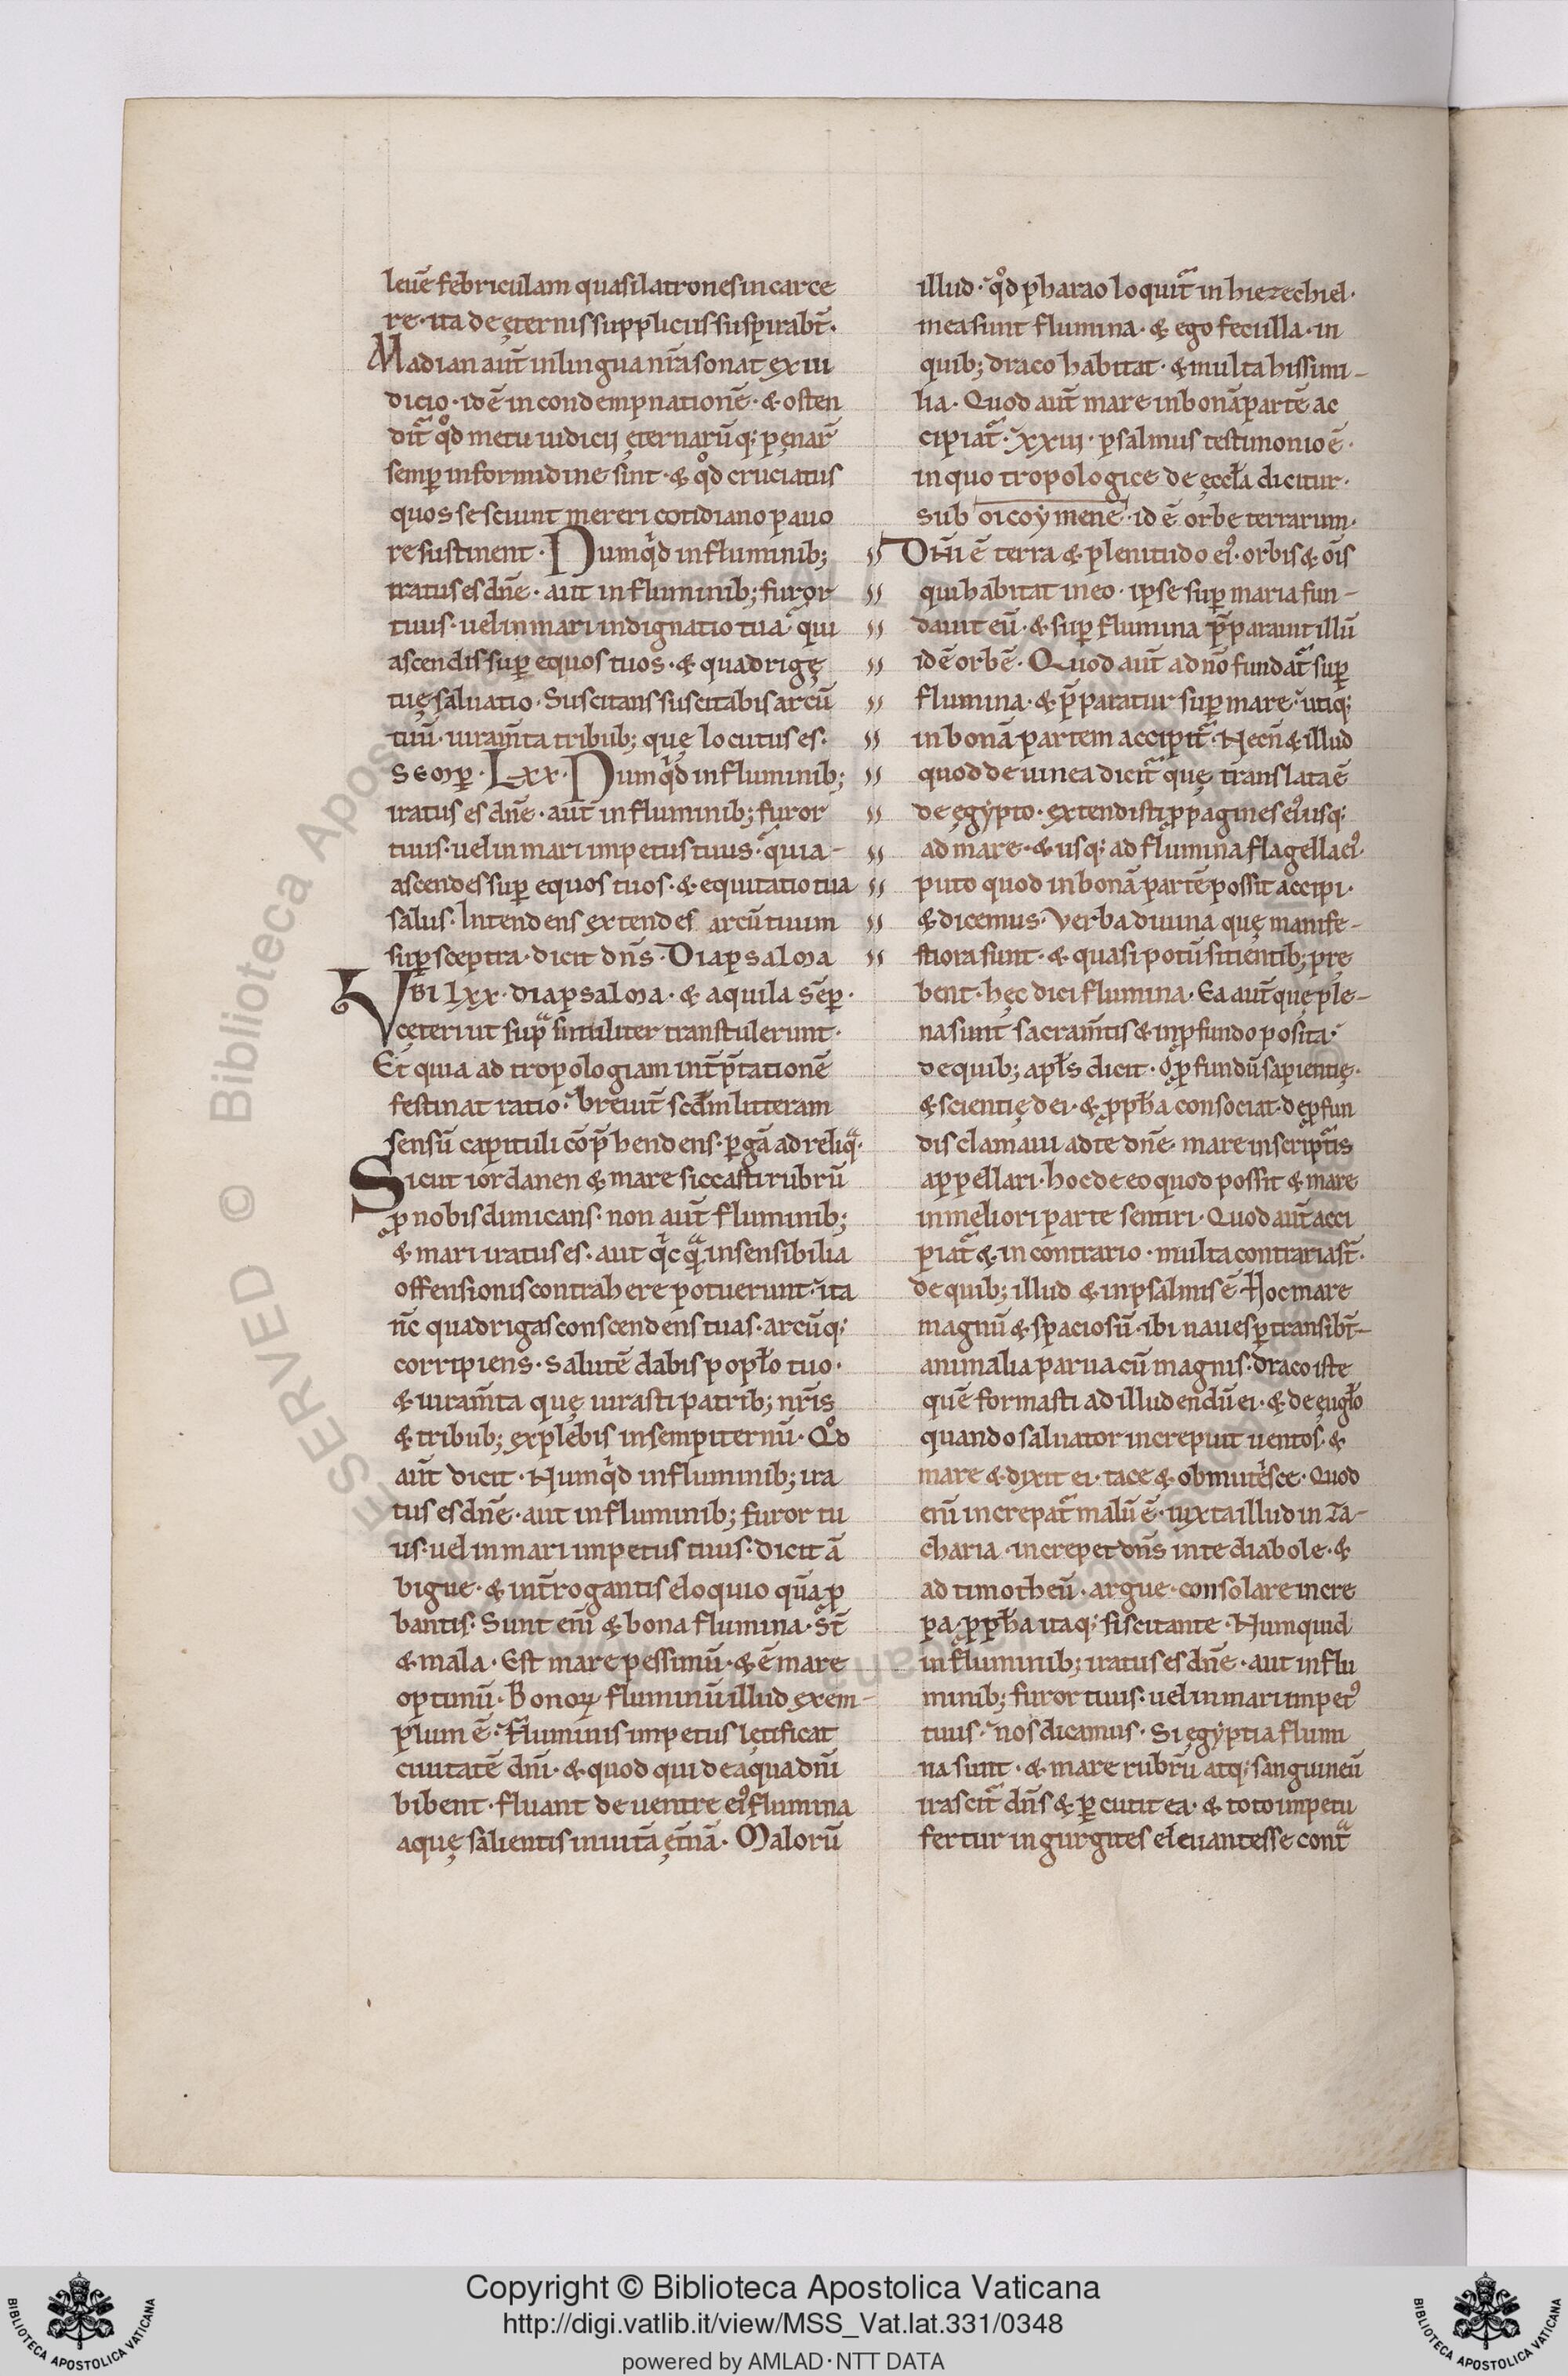 leuē febriculam quasi latrones in carce
re· ita de ęternis suppliciis suspirabt̄.
Madian aut̄ in lingua nr̄a sonat ex iu
dicio· id ē in condempnationē· & osten
dit᷒ qd̊ metu iudicij ęternarūq; pęnar̄
semꝑ in formidine sint· & qd̊ cruciatus
quos se sciunt mereri cotidiano pauo
re sustinent· Numqͥd in fluminib;
iratus es dn̄e· aut in fluminib; furor
tuus· uel in mari indignatio tua· qui
ascendis suꝑ equos tuos· & quadrigę
tuę saluatio· Suscitans suscitabis arcū
tuū· iuram̄ta tribub; quę locutus es·
semꝑ· Lxx· Numqͥd in fluminib;
iratus es dn̄e· aut in fluminib; furor
tuus· uel in mari impetus tuus· quia-
ascendes suꝑ equos tuos· & equitatio tua
salus· Intendens extendes arcū tuum
suꝑ sceptra· dicit dn̄s· Diapsalma
Vbi lxx· diapsalma· & aquila sēꝑ·
cęteri ut supᵃ similiter transtulerunt·
Et quia ad tropologiam int̄p̄tationē
festinat ratio· breuit̄ scđm litteram
sensū capituli cōp̄hendens· ꝑgā ad reliqᵃ·
Sicut iordanen & mare siccasti rubrū
ꝓ nobis dimicans· non aut̄ fluminib;
& mari iratus es· aut qͥcqᵃ insensibilia
offensionis contrahere potuerunt· ita
nc̄ quadrigas conscendens tuas· arcūq;
corripiens· salutē dabis popło tuo·
& iuram̄ta quę iurasti patrib; nr̄is
& tribub; explebis in sempiternū· Qd̊
aut̄ dicit· Numqͥd in fluminib; ira
tus es dn̄e· aut in fluminib; furor tu
us· uel in mari impetus tuus· dicit ā
bigue· & int̄rogantis eloquio quā ꝓ
bantis· Sunt eni̅ & bona flumina· st̄
& mala· Est mare pessimū· & ē mare
optimū· Bonoꝝ fluminū illud exem-
plum ē· Fluminis impetus lętificat
ciuitatē dn̄i· & quod qui de aqua dn̄i
bibent· fluant de uentre ei᷒ flumina
aquę salientis in uitā ęt̄nā· Malorū
illud· qd̊ pharao loquit᷒ in hiezechiel·
mea sunt flumina· & ego feci illa· in
quib; draco habitat· & multa his simi-
lia· Quod aut̄ mare in bonā partē ac
cipiat᷒· xxiii· psalmus testimonio ē·
in quo tropologice de ęccła dicitur·
sub oicoymene· id ē orbe terrarum·
Dn̄i ē terra & plenitudo ei᷒· orbis & oīs
qui habitat in eo· ipse suꝑ maria fun-
dauit eū· & suꝑ flumina p̄parauit illū
id ē orbē· Quod aut̄ a dn̄o fundat᷒ suꝑ
flumina· & p̄paratur suꝑ mare· utiq;
in bonā partem accipit᷒· Necn̄ & illud
quod de uinea dicit᷒ quę translata ē
de ęgypto· extendisti ꝓpagines ei᷒ usq;
ad mare· & usq; ad flumina flagella ei᷒·
puto quod in bonā partē possit accipi·
& dicemus· Verba diuina quę manife-
stiora sunt· & quasi potū sitientib; prę
bent· hęc dici flumina· Ea aut̄ quę ple-
na sunt sacram̄tis & in ꝓfundo posita·
de quib; apłs dicit· O ꝓfundū sapientię·
& scientię dei· & ꝓpha consociat· de ꝓfun
dis clamaui ad te dn̄e· mare in scriptᵃis
appellari· hoc de eo quod possit & mare
in meliori parte sentiri· Quod aut̄ acci
piat᷒ & in contrario· multa contraria st̄·
de quib; illud & in psalmis ē Hoc mare
magnū & spaciosū· ibi naues ꝑtransibt̄-
animalia parua cū magnis· draco iste
quē formasti ad illudendū ei· & de ęugło
quando saluator increpuit uentos· &
mare & dixit ei· tace & obmutesce· Quod
eni̅ increpat᷒ malū ē· iuxta illud in za-
charia· increpet dn̄s in te diabole· &
ad timotheū· argue· consolare incre
pa· ꝓpha itaq; siscitante· Numquid
in fluminib; iratus es dn̄e· aut in flu
minib; furor tuus· uel in mari impet᷒
tuus· nos dicamus· Si ęgyptia flumi
na sunt· & mare rubrū atq; sanguineū
irascit᷒ dn̄s & ꝑcutit ea· & toto impetu
fertur in gurgites eleuantes se contᵃ
Copyright © Biblioteca Apostolica Vaticana
http://digi.vatlib.it/view/MSS_Vat.lat.331/0348
powered by AMLAD·NTT DATA
BIBLIOTECA APOSTOLICA VATICANA
BIBLIOTECA APOSTOLICA VATICANA